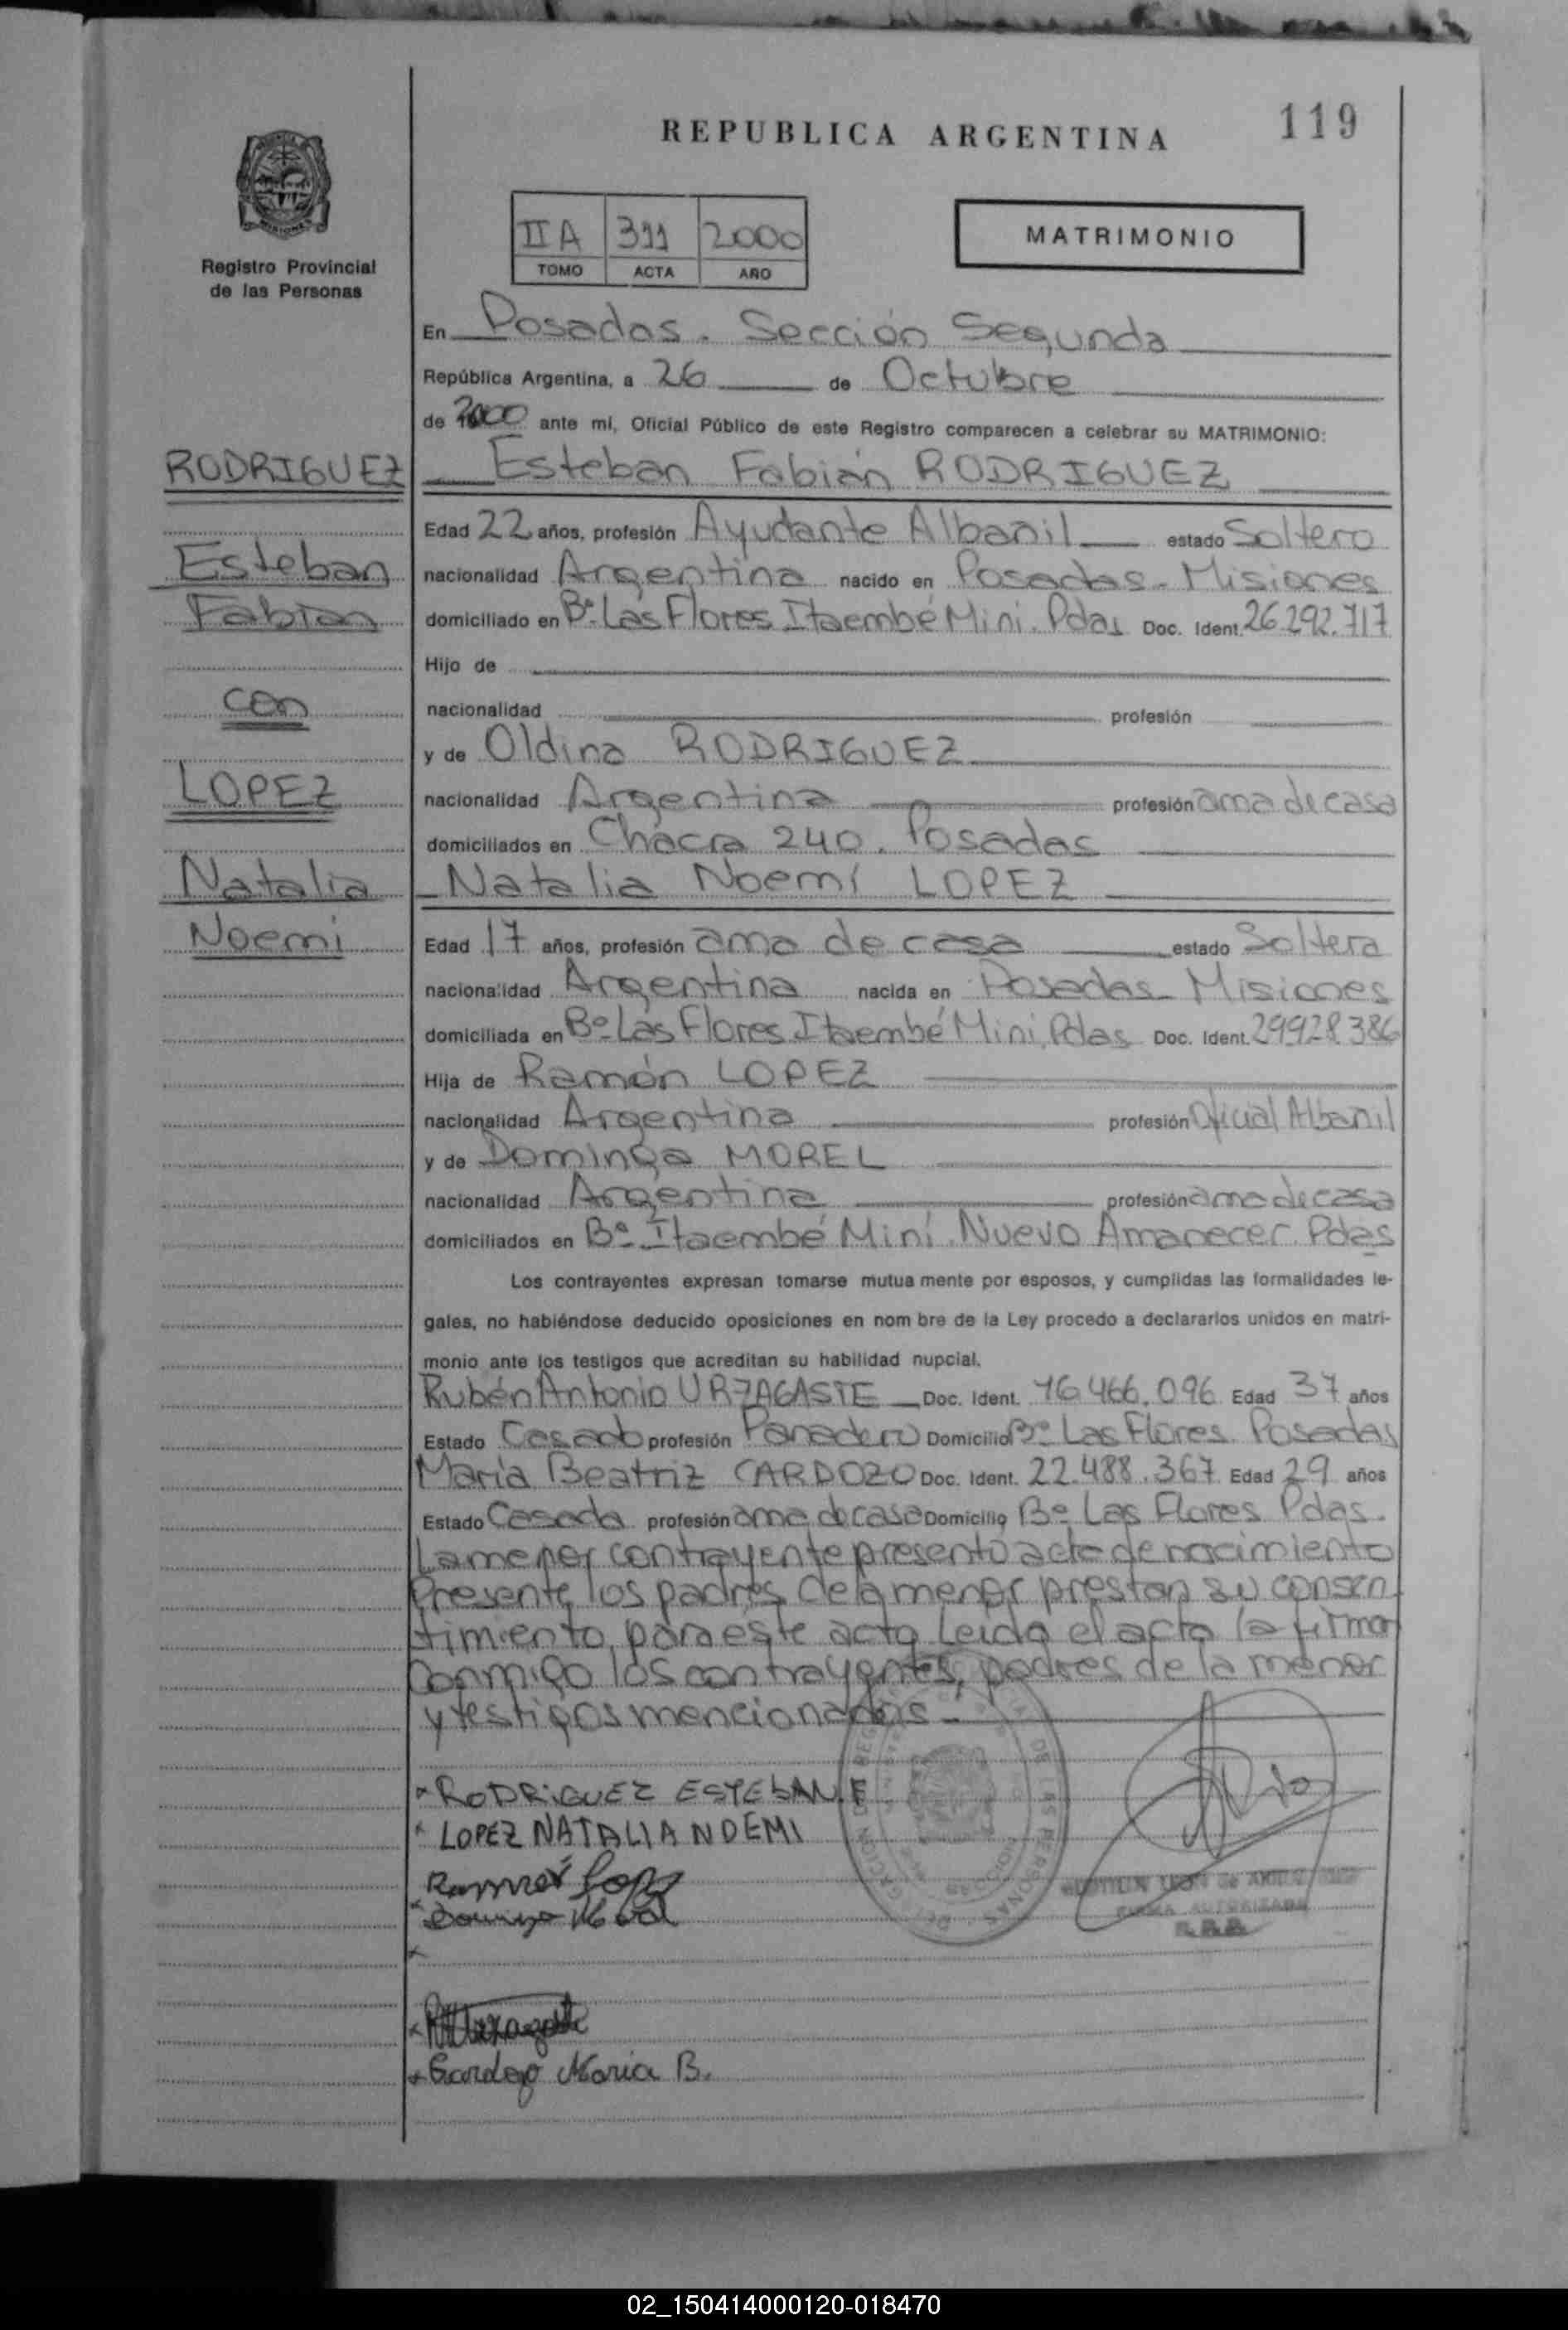 REPUBLICA ARGENTINA
119
Registro Provincial
de las Personas
IIA 311 2000
TOMO ACTA AÑO
MATRIMONIO
En Posadas. Sección Segunda
República Argentina, a 26 de Octubre
de 2000 ante mi, Oficial Público de este Registro comparecen a celebrar su MATRIMONIO:
RODRIGUEZ
Esteban
Fabian
con
LOPEZ
Natalia
Noemi
Esteban Fabián RODRIGUEZ
Edad 22 años, profesión Ayudante Albañil estado Soltero
nacionalidad Argentina nacido en Posadas - Misiones
domiciliado en Bº Las Flores Itaembé Mini. Pdas Doc. Ident. 26.292.717
Hijo de
nacionalidad profesión
y de Oldina RODRIGUEZ
nacionalidad Argentina profesión ama de casa
domiciliados en Chacra 240. Posadas
Natalia Noemí LOPEZ
Edad 17 años, profesión ama de casa estado Soltera
nacionalidad Argentina nacida en Posadas - Misiones
domiciliada en Bº Las Flores Itaembé Mini. Pdas Doc. Ident. 29928386
Hija de Ramón LOPEZ
nacionalidad Argentina profesión Oficial Albañil
y de Dominga MOREL
nacionalidad Argentina profesión ama de casa
domiciliados en Bº Itaembé Miní. Nuevo Amanecer Pdas
Los contrayentes expresan tomarse mutua mente por esposos, y cumplidas las formalidades le-
gales, no habiéndose deducido oposiciones en nom bre de la Ley procedo a declararlos unidos en matri-
monio ante los testigos que acreditan su habilidad nupcial.
Rubén Antonio URZAGASTE Doc. Ident. 16.466.096 Edad 37 años
Estado Casado profesión Panadero Domicilio Bº Las Flores. Posadas
María Beatriz CARDOZO Doc. Ident. 22.488.367 Edad 29 años
Estado Casada profesión ama de casa Domicilio Bº Las Flores Pdas.
La menor contrayente presento acta de nacimiento
Presente los padres de la menor prestan su consen
timiento para este acto. Leida el acta la firman
conmigo los contrayentes, padres de la menor
y testigos mencionados.-
RODRIGUEZ ESTEBAN.F
LOPEZ NATALIA NOEMI
FIRMA AUTORIZADA
Cardozo Maria B.
02_150414000120-018470